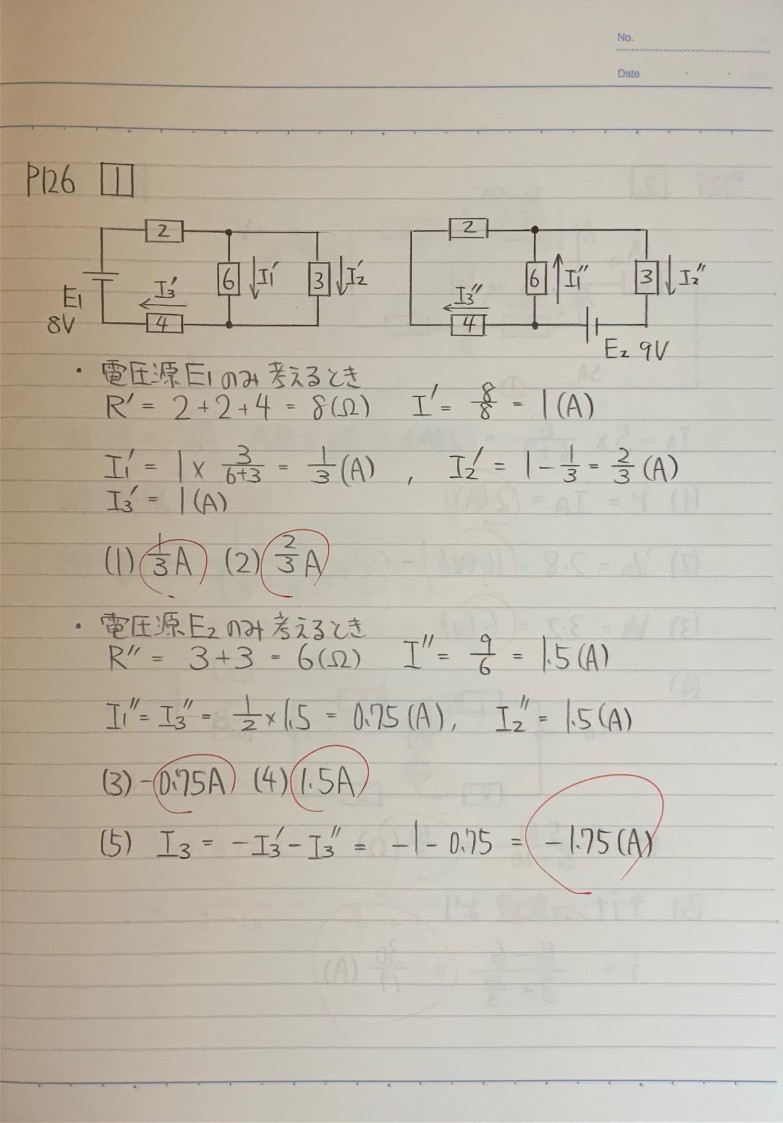 No.
Date
P126 1
2 2
6 I₁' 3 I₂' 6 I₁'' 3 I₂''
E₁ I₃' I₃''
8V 4 4
E₂ 9V
・電圧源E₁のみ考えるとき
R' = 2+2+4 = 8(Ω) I' = 8/8 = 1(A)
I₁' = 1 × 3/(6+3) = 1/3(A) , I₂' = 1 - 1/3 = 2/3(A)
I₃' = 1(A)
(1) 1/3A (2) 2/3A
・電圧源E₂のみ考えるとき
R'' = 3+3 = 6(Ω) I'' = 9/6 = 1.5(A)
I₁'' = I₃'' = 1/2 × 1.5 = 0.75(A), I₂'' = 1.5(A)
(3) -0.75A (4) 1.5A
(5) I₃ = -I₃' - I₃'' = -1 - 0.75 = -1.75(A)